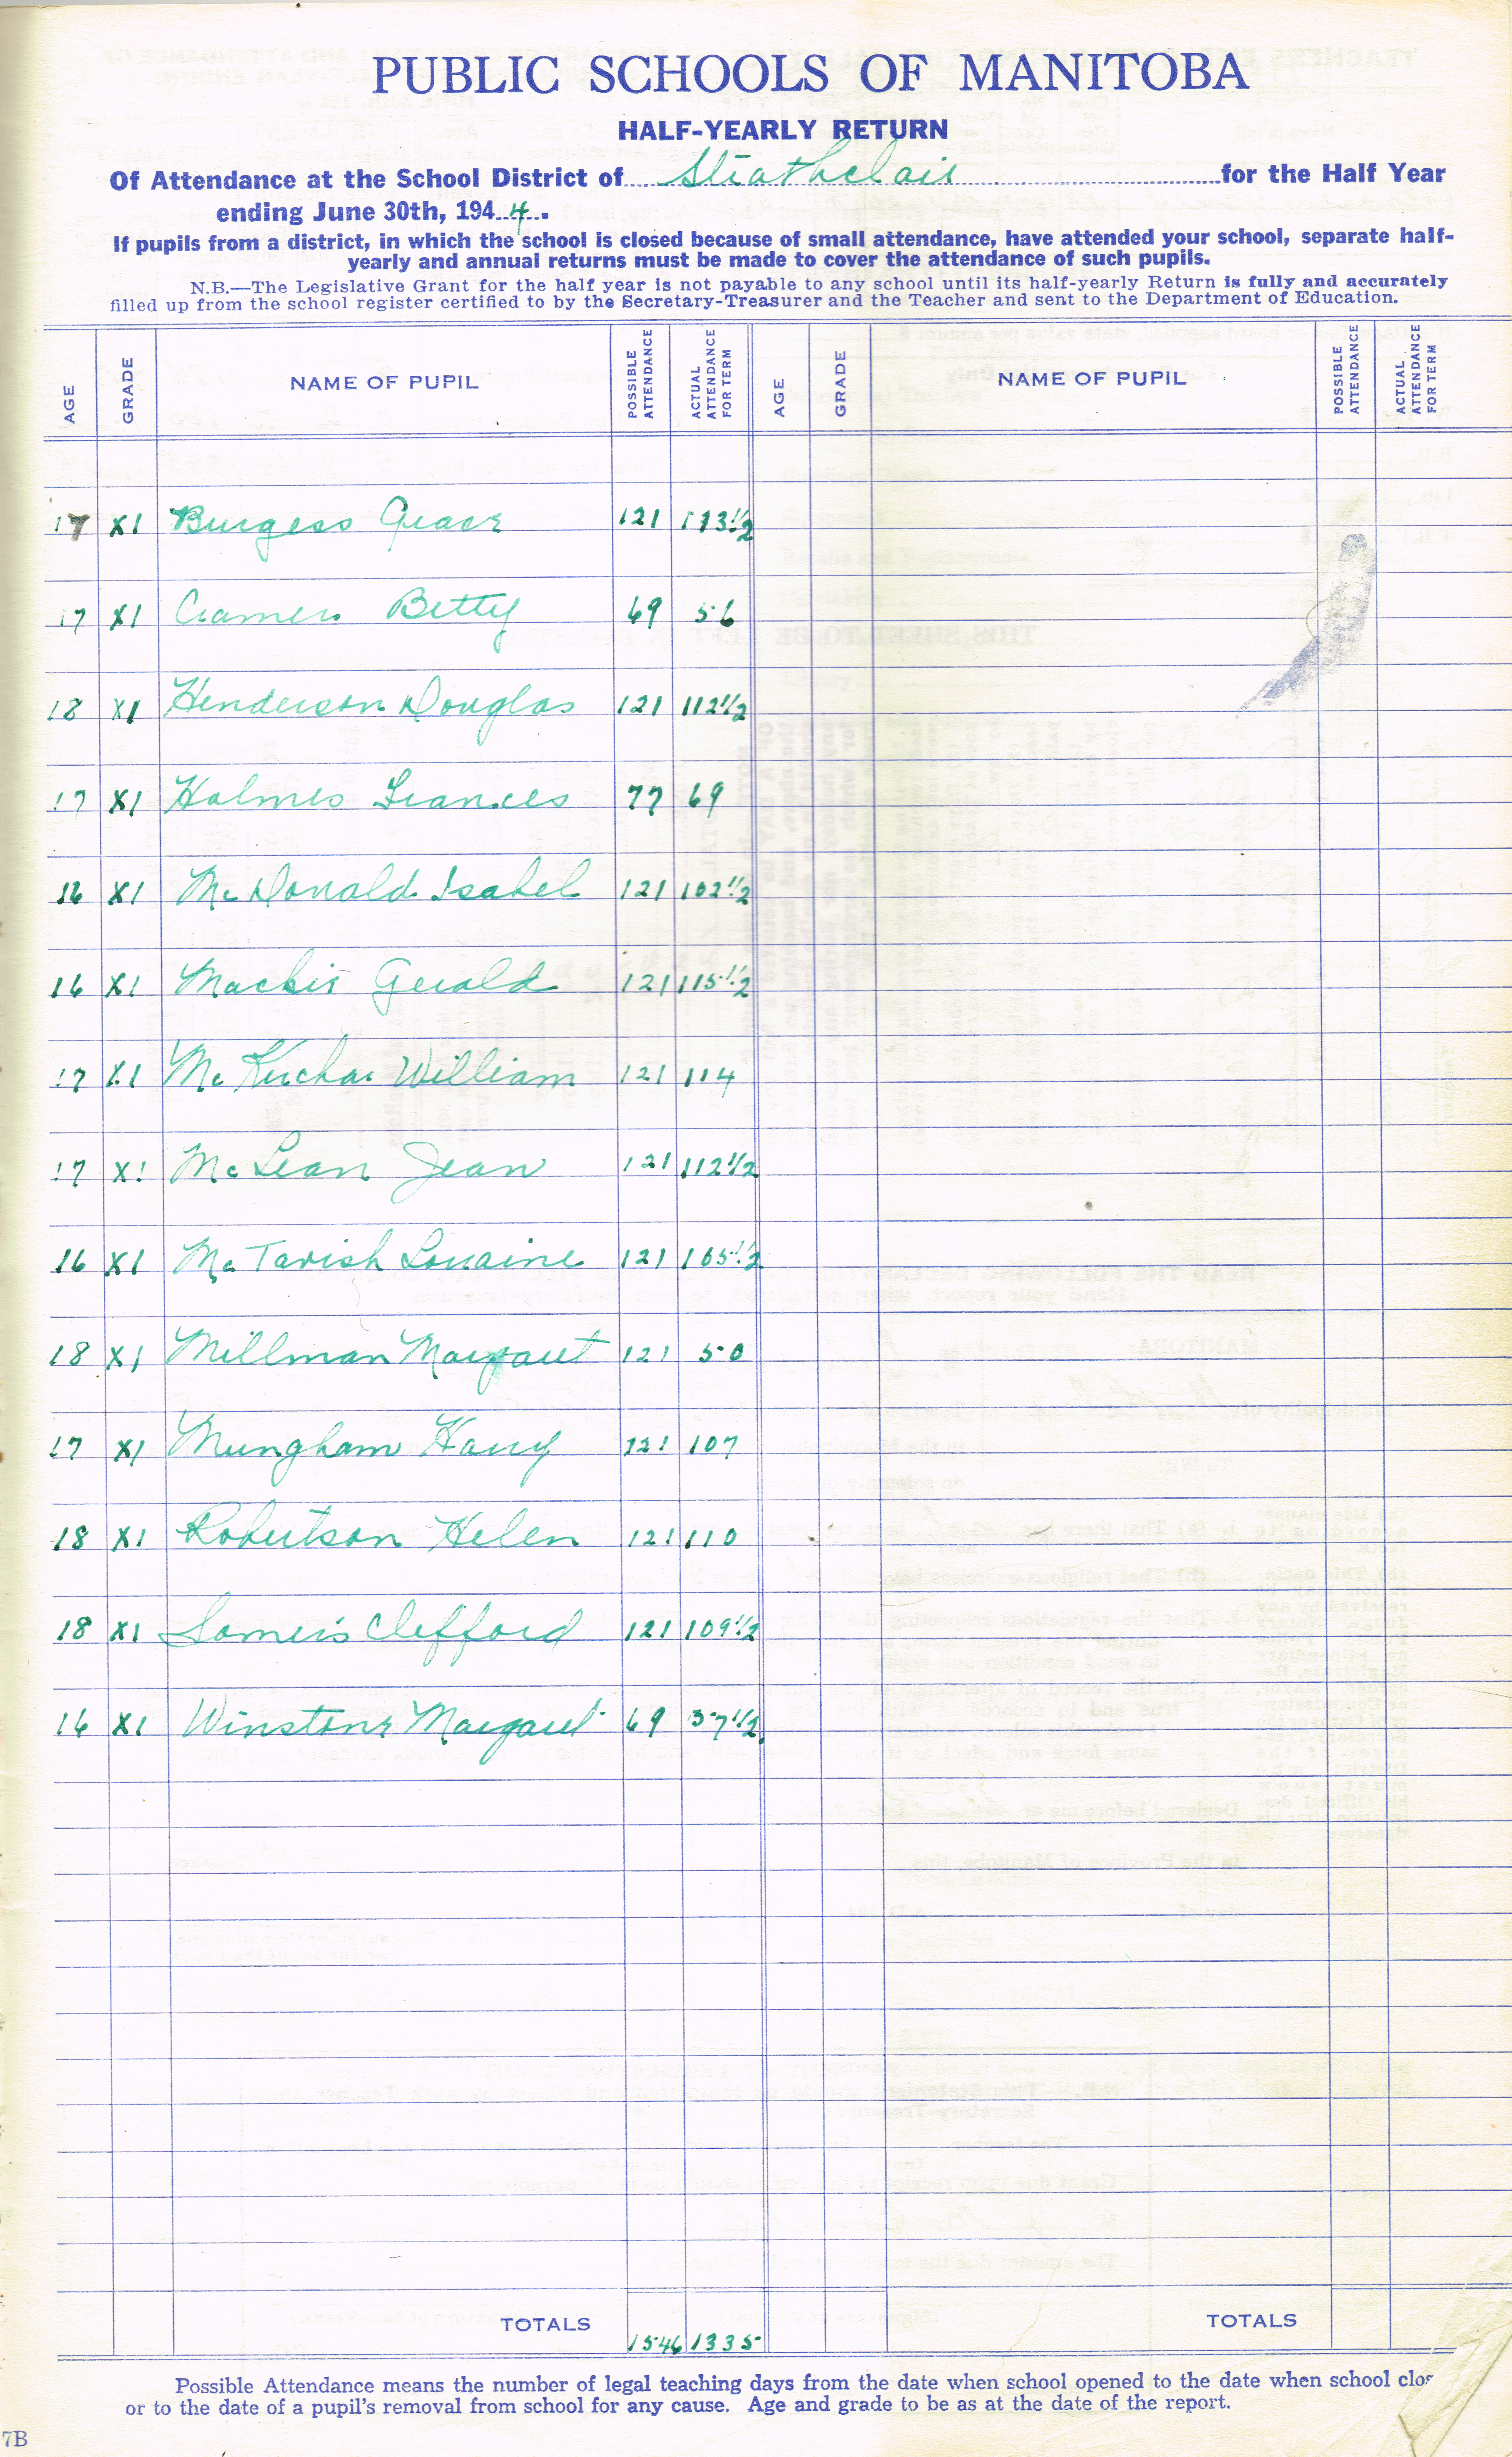 PUBLIC SCHOOLS OF MANITOBA
HALF-YEARLY RETURN
Of Attendance at the School District of Strathclair for the Half Year
ending June 30th, 1944.
If pupils from a district, in which the school is closed because of small attendance, have attended your school, separate half-
yearly and annual returns must be made to cover the attendance of such pupils.
N.B.—The Legislative Grant for the half year is not payable to any school until its half-yearly Return is fully and accurately
filled up from the school register certified to by the Secretary-Treasurer and the Teacher and sent to the Department of Education.
AGE GRADE NAME OF PUPIL POSSIBLE ATTENDANCE ACTUAL ATTENDANCE FOR TERM AGE GRADE NAME OF PUPIL POSSIBLE ATTENDANCE ACTUAL ATTENDANCE FOR TERM
17 XI Burgess Grace 121 113 1/2
17 XI Cramer Betty 69 56
18 XI Henderson Douglas 121 112 1/2
17 XI Holmes Frances 77 69
16 XI McDonald Isabel 121 102 1/2
16 XI Mackie Gerald 121 115 1/2
17 XI McKerchar William 121 114
17 XI McLean Jean 121 112 1/2
16 XI McTavish Lorraine 121 105 1/2
18 XI Millman Margaret 121 50
17 XI Mungham Harry 121 107
18 XI Robertson Helen 121 110
18 XI Somers Clifford 121 109 1/2
16 XI Winstone Margaret 69 57 1/2
TOTALS 1546 1335 TOTALS
Possible Attendance means the number of legal teaching days from the date when school opened to the date when school clos
or to the date of a pupil's removal from school for any cause. Age and grade to be as at the date of the report.
7B